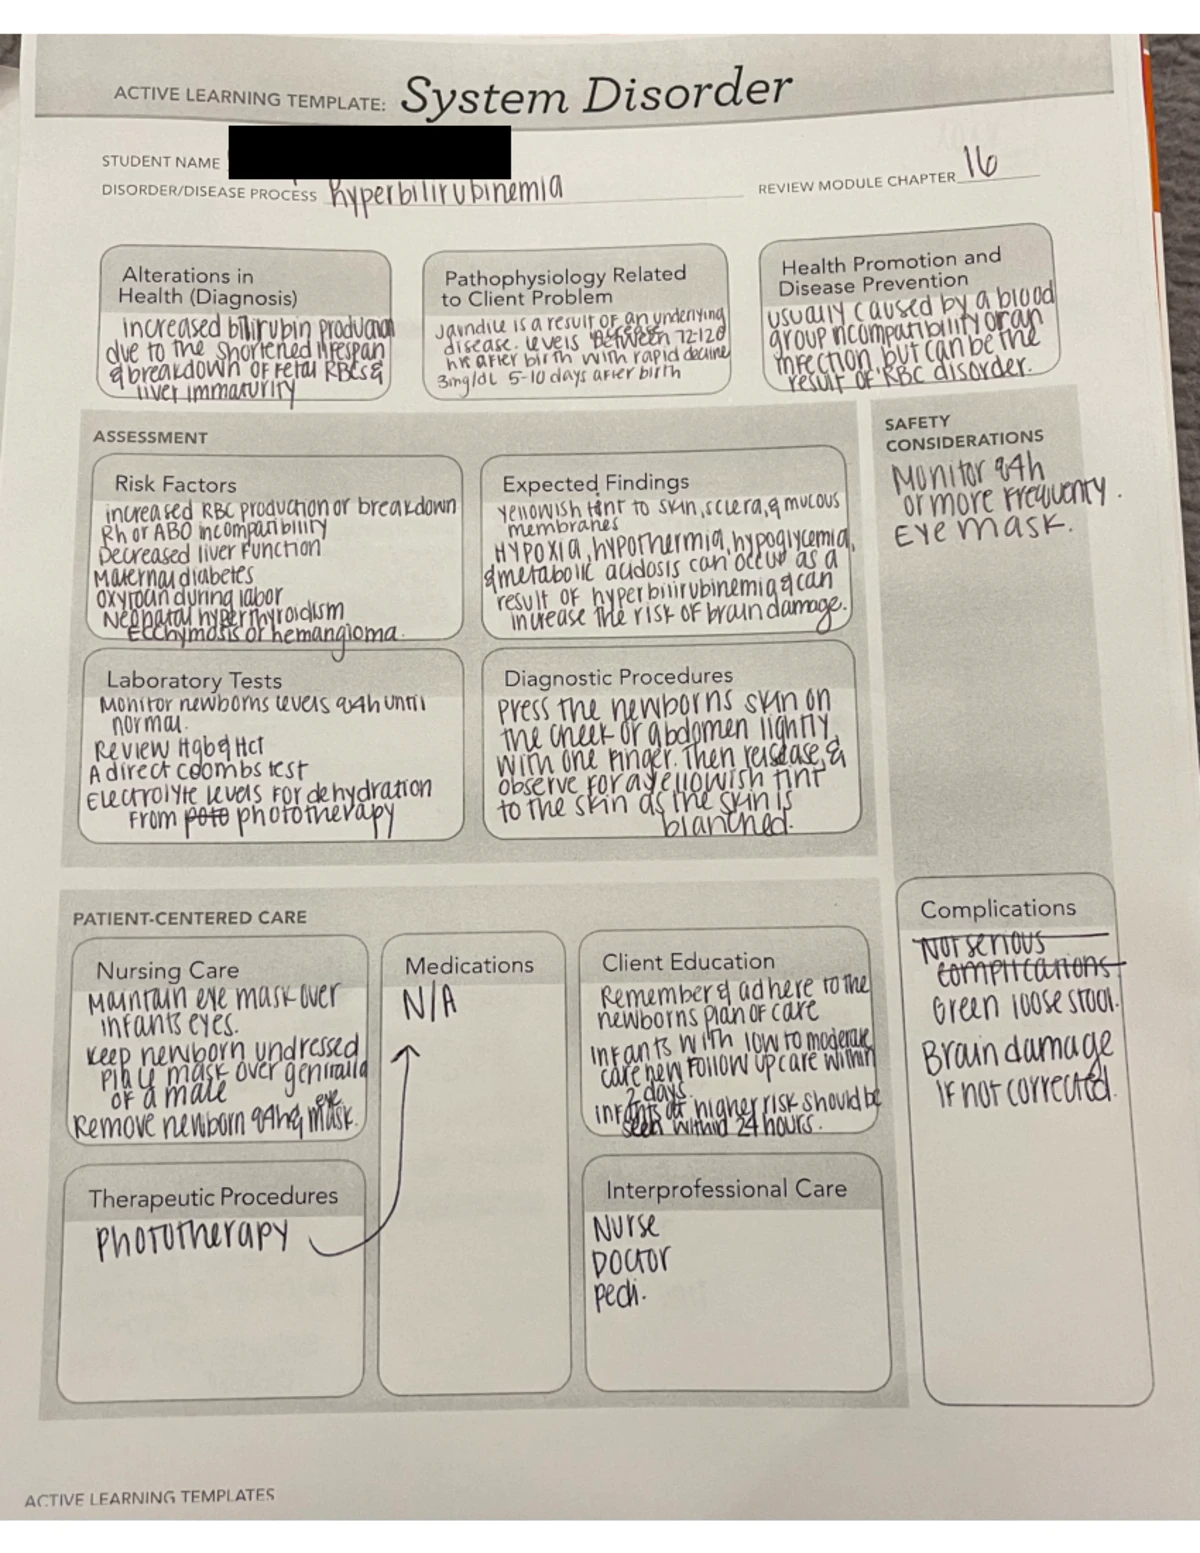 ACTIVE LEARNING TEMPLATE: System Disorder
STUDENT NAME
DISORDER/DISEASE PROCESS hyperbilirubinemia
REVIEW MODULE CHAPTER 16
Alterations in
Health (Diagnosis)
increased bilirubin production
due to the shortened lifespan
& breakdown of fetal RBCs &
liver immaturity
Pathophysiology Related
to Client Problem
Jaundice is a result of an underlying
disease. Levels between 72-120
hrs after birth with rapid decline
3mg/dL 5-10 days after birth
Health Promotion and
Disease Prevention
usually caused by a blood
group incompatibility or an
infection, but can be the
result of RBC disorder.
ASSESSMENT
Risk Factors
increased RBC production or breakdown
Rh or ABO incompatibility
Decreased liver function
Maternal diabetes
Oxytocin during labor
Neonatal hyperthyroidism
Ecchymosis or hemangioma.
Expected Findings
Yellowish tint to skin, sclera, & mucous
membranes
Hypoxia, hypothermia, hypoglycemia,
& metabolic acidosis can occur as a
result of hyperbilirubinemia & can
increase the risk of brain damage.
SAFETY
CONSIDERATIONS
Monitor q4h
or more frequenty.
Eye mask.
Laboratory Tests
Monitor newborns levels q4h until
normal.
Review Hgb & Hct
A direct coombs test
Electrolyte levels for dehydration
from poto phototherapy
Diagnostic Procedures
press the newborns skin on
the cheek or abdomen lightly
with one finger. Then release, &
observe for a yellowish tint
to the skin as the skin is
blanched.
PATIENT-CENTERED CARE
Nursing Care
Maintain eye mask over
infants eyes.
Keep newborn undressed
place mask over genitalia
of a male
Remove newborn q4h & eye mask.
Medications
N/A
Client Education
Remember & adhere to the
newborns plan of care
infants with low to moderate
care new follow up care within
2 days.
infants at higher risk should be
seen within 24 hours.
Complications
Not serious
complications
Green loose stool.
Brain damage
if not corrected.
Therapeutic Procedures
Phototherapy
Interprofessional Care
Nurse
Doctor
pedi.
ACTIVE LEARNING TEMPLATES